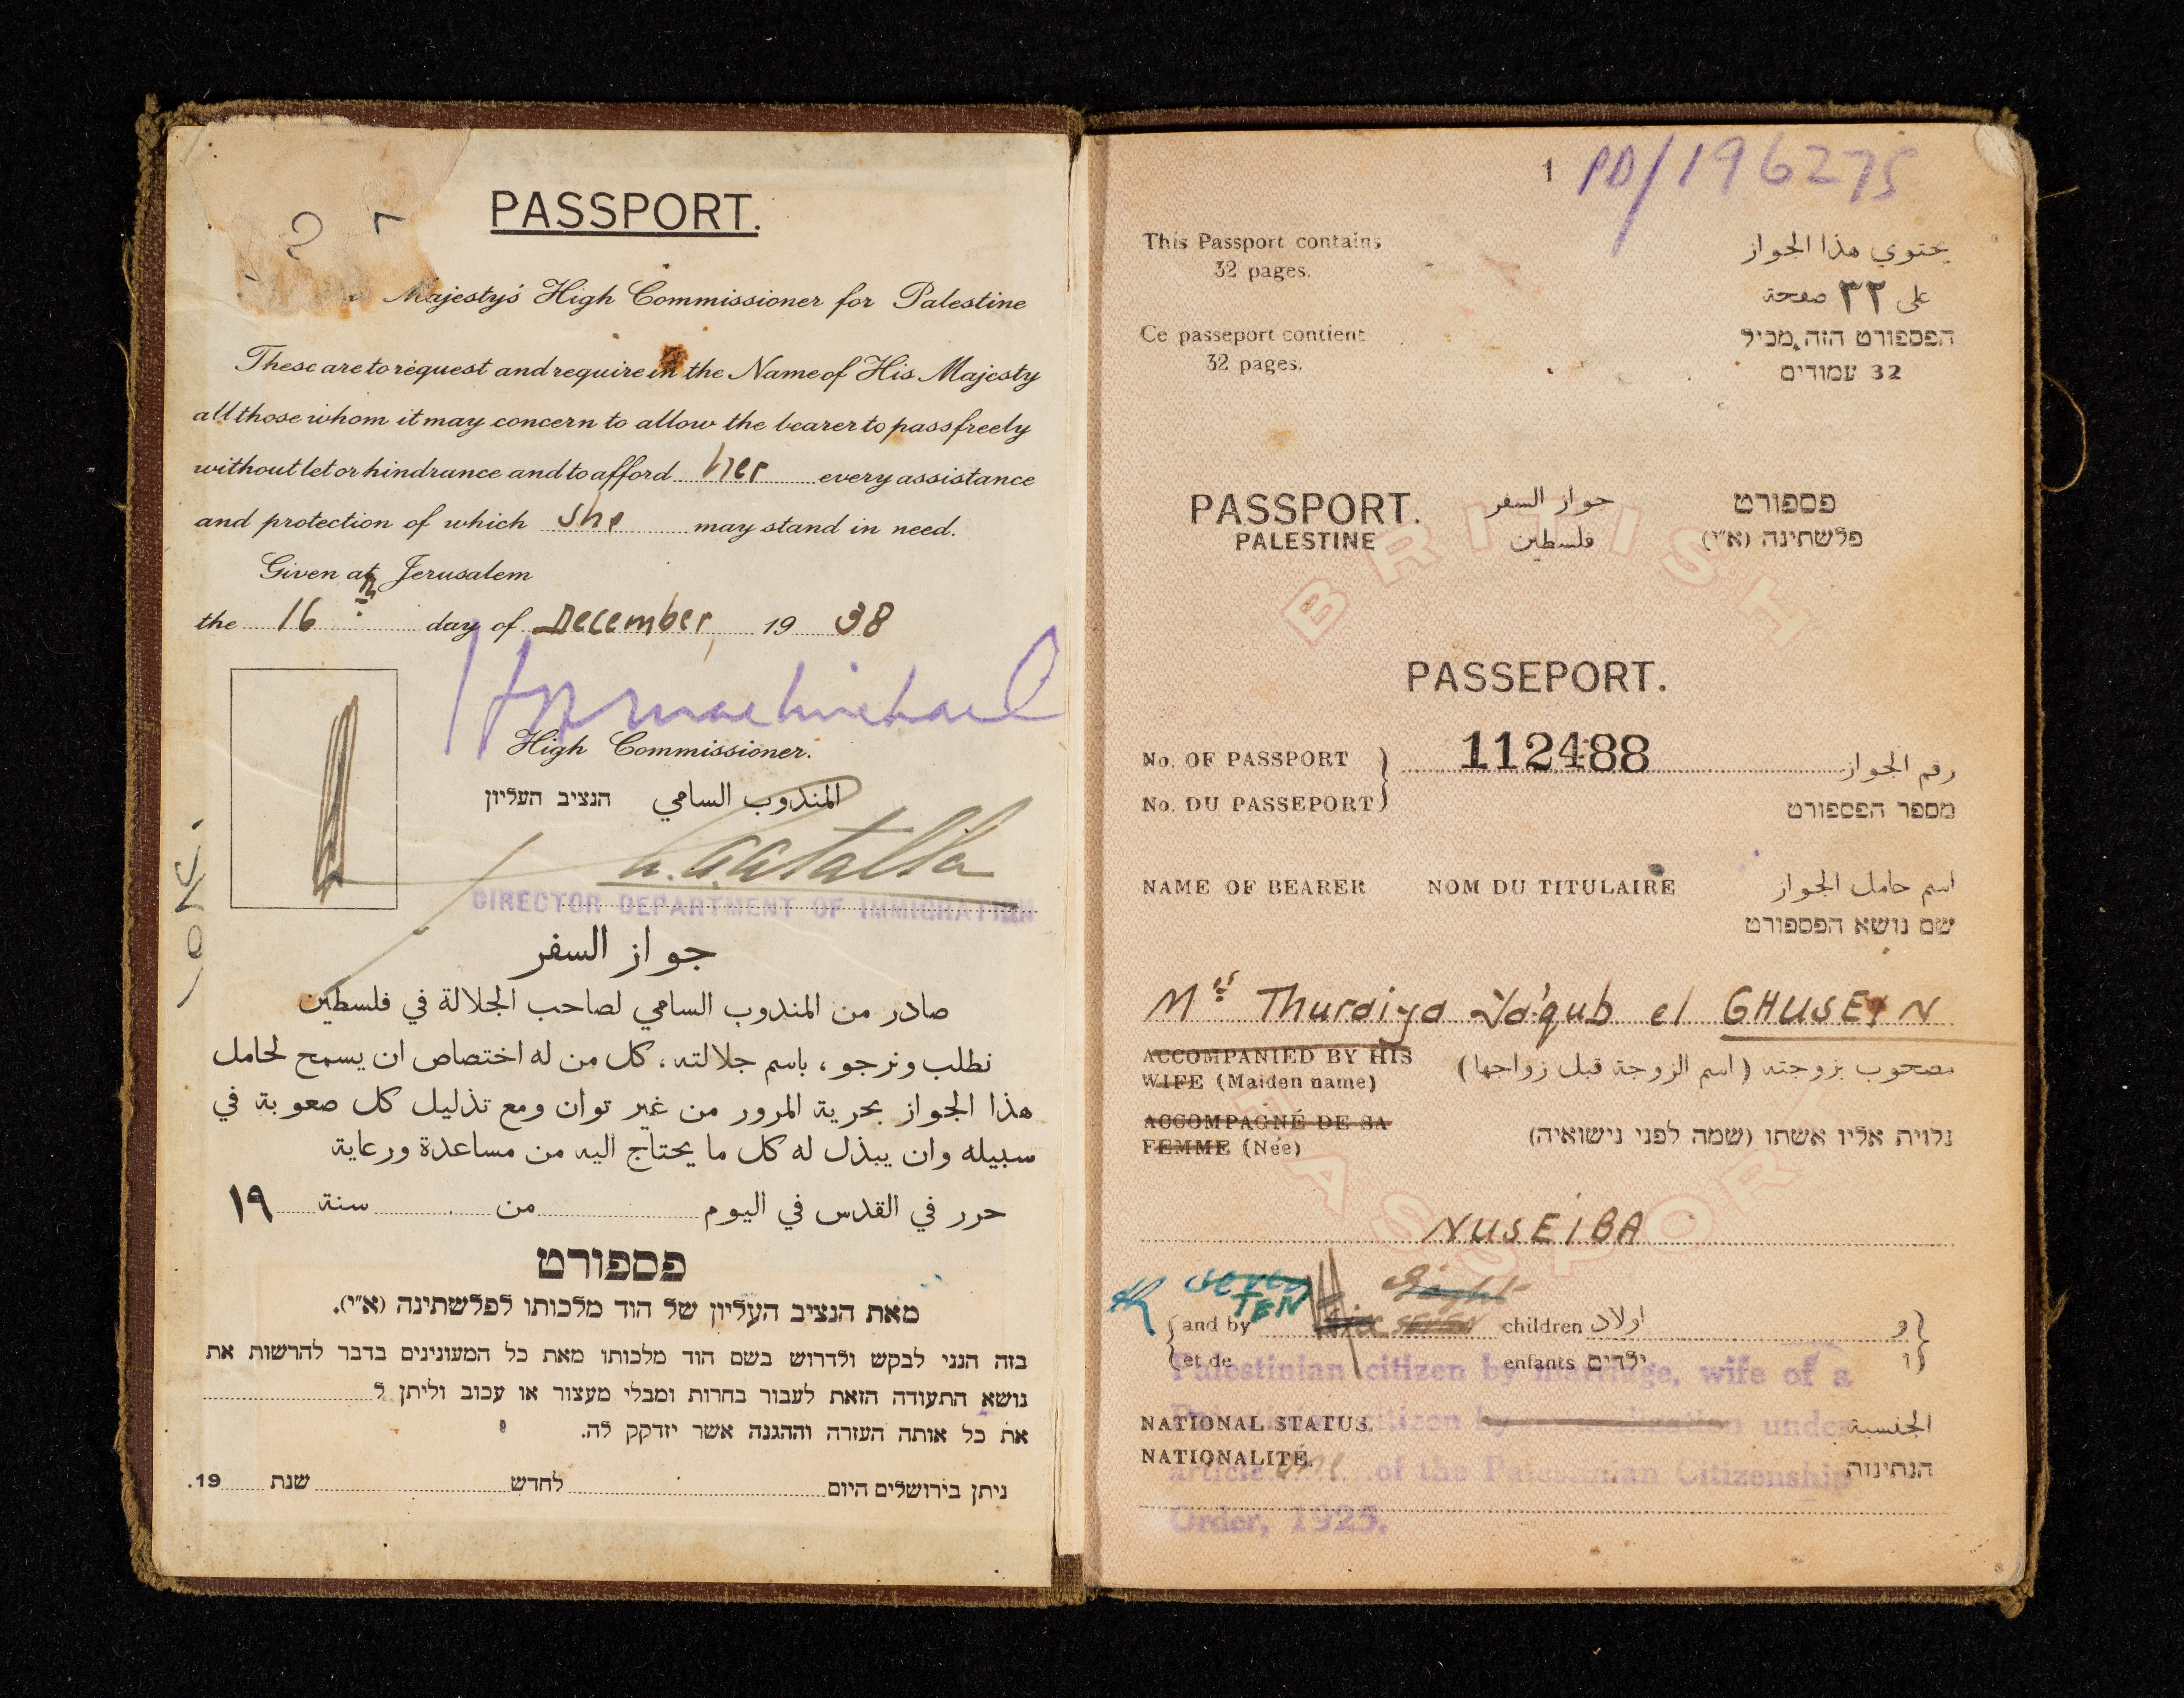 PASSPORT.
Majesty's High Commissioner for Palestine
These are to request and require in the Name of His Majesty
all those whom it may concern to allow the bearer to pass freely
without let or hindrance and to afford her every assistance
and protection of which she may stand in need.
Given at Jerusalem
the 16th day of December, 19 38
High Commissioner.
المندوب السامي הנציב העליון
DIRECTOR DEPARTMENT OF IMMIGRATION
جواز السفر
صادر من المندوب السامي لصاحب الجلالة في فلسطين
نطلب ونرجو، باسم جلالته، كل من له اختصاص ان يسمح لحامل
هذا الجواز بحرية المرور من غير توان ومع تذليل كل صعوبة في
سبيله وان يبذل له كل ما يحتاج اليه من مساعدة ورعاية
حرر في القدس في اليوم من سنة ١٩
פספורט
מאת הנציב העליון של הוד מלכותו לפלשתינה (א״י).
בזה הנני לבקש ולדרוש בשם הוד מלכותו מאת כל המעונינים בדבר להרשות את
נושא התעודה הזאת לעבור בחרות ומבלי מעצור או עכוב וליתן ל
את כל אותה העזרה וההגנה אשר יזדקק לה.
ניתן בירושלים היום לחדש שנת 19.
1 PD/196275
This Passport contains
32 pages.
يحتوي هذا الجواز
على ٣٢ صفحة
Ce passeport contient
32 pages.
הפספורט הזה מכיל
32 עמודים
PASSPORT. جواز السفر פספורט
PALESTINE فلسطين פלשתינה (א״י)
BRITISH
PASSEPORT.
No. OF PASSPORT 112488 رقم الجواز
No. DU PASSEPORT מספר הפספורט
NAME OF BEARER NOM DU TITULAIRE اسم حامل الجواز
שם נושא הפספורט
Mrs Thuraiya Ya'qub el GHUSEIN
ACCOMPANIED BY HIS
WIFE (Maiden name) مصحوب بزوجته (اسم الزوجة قبل زواجها)
ACCOMPAGNÉ DE SA
FEMME (Née) נלוית אליו אשתו (שמה לפני נישואיה)
PASSPORT
NUSEIBA
seven Eight
TEN
and by six seven children اولاد و
et de enfants ילדים ו
Palestinian citizen by marriage, wife of a
NATIONAL STATUS. citizen by under الجنسية
NATIONALITÉ.
article one of the Palestinian Citizenship הנתינות
Order, 1925.